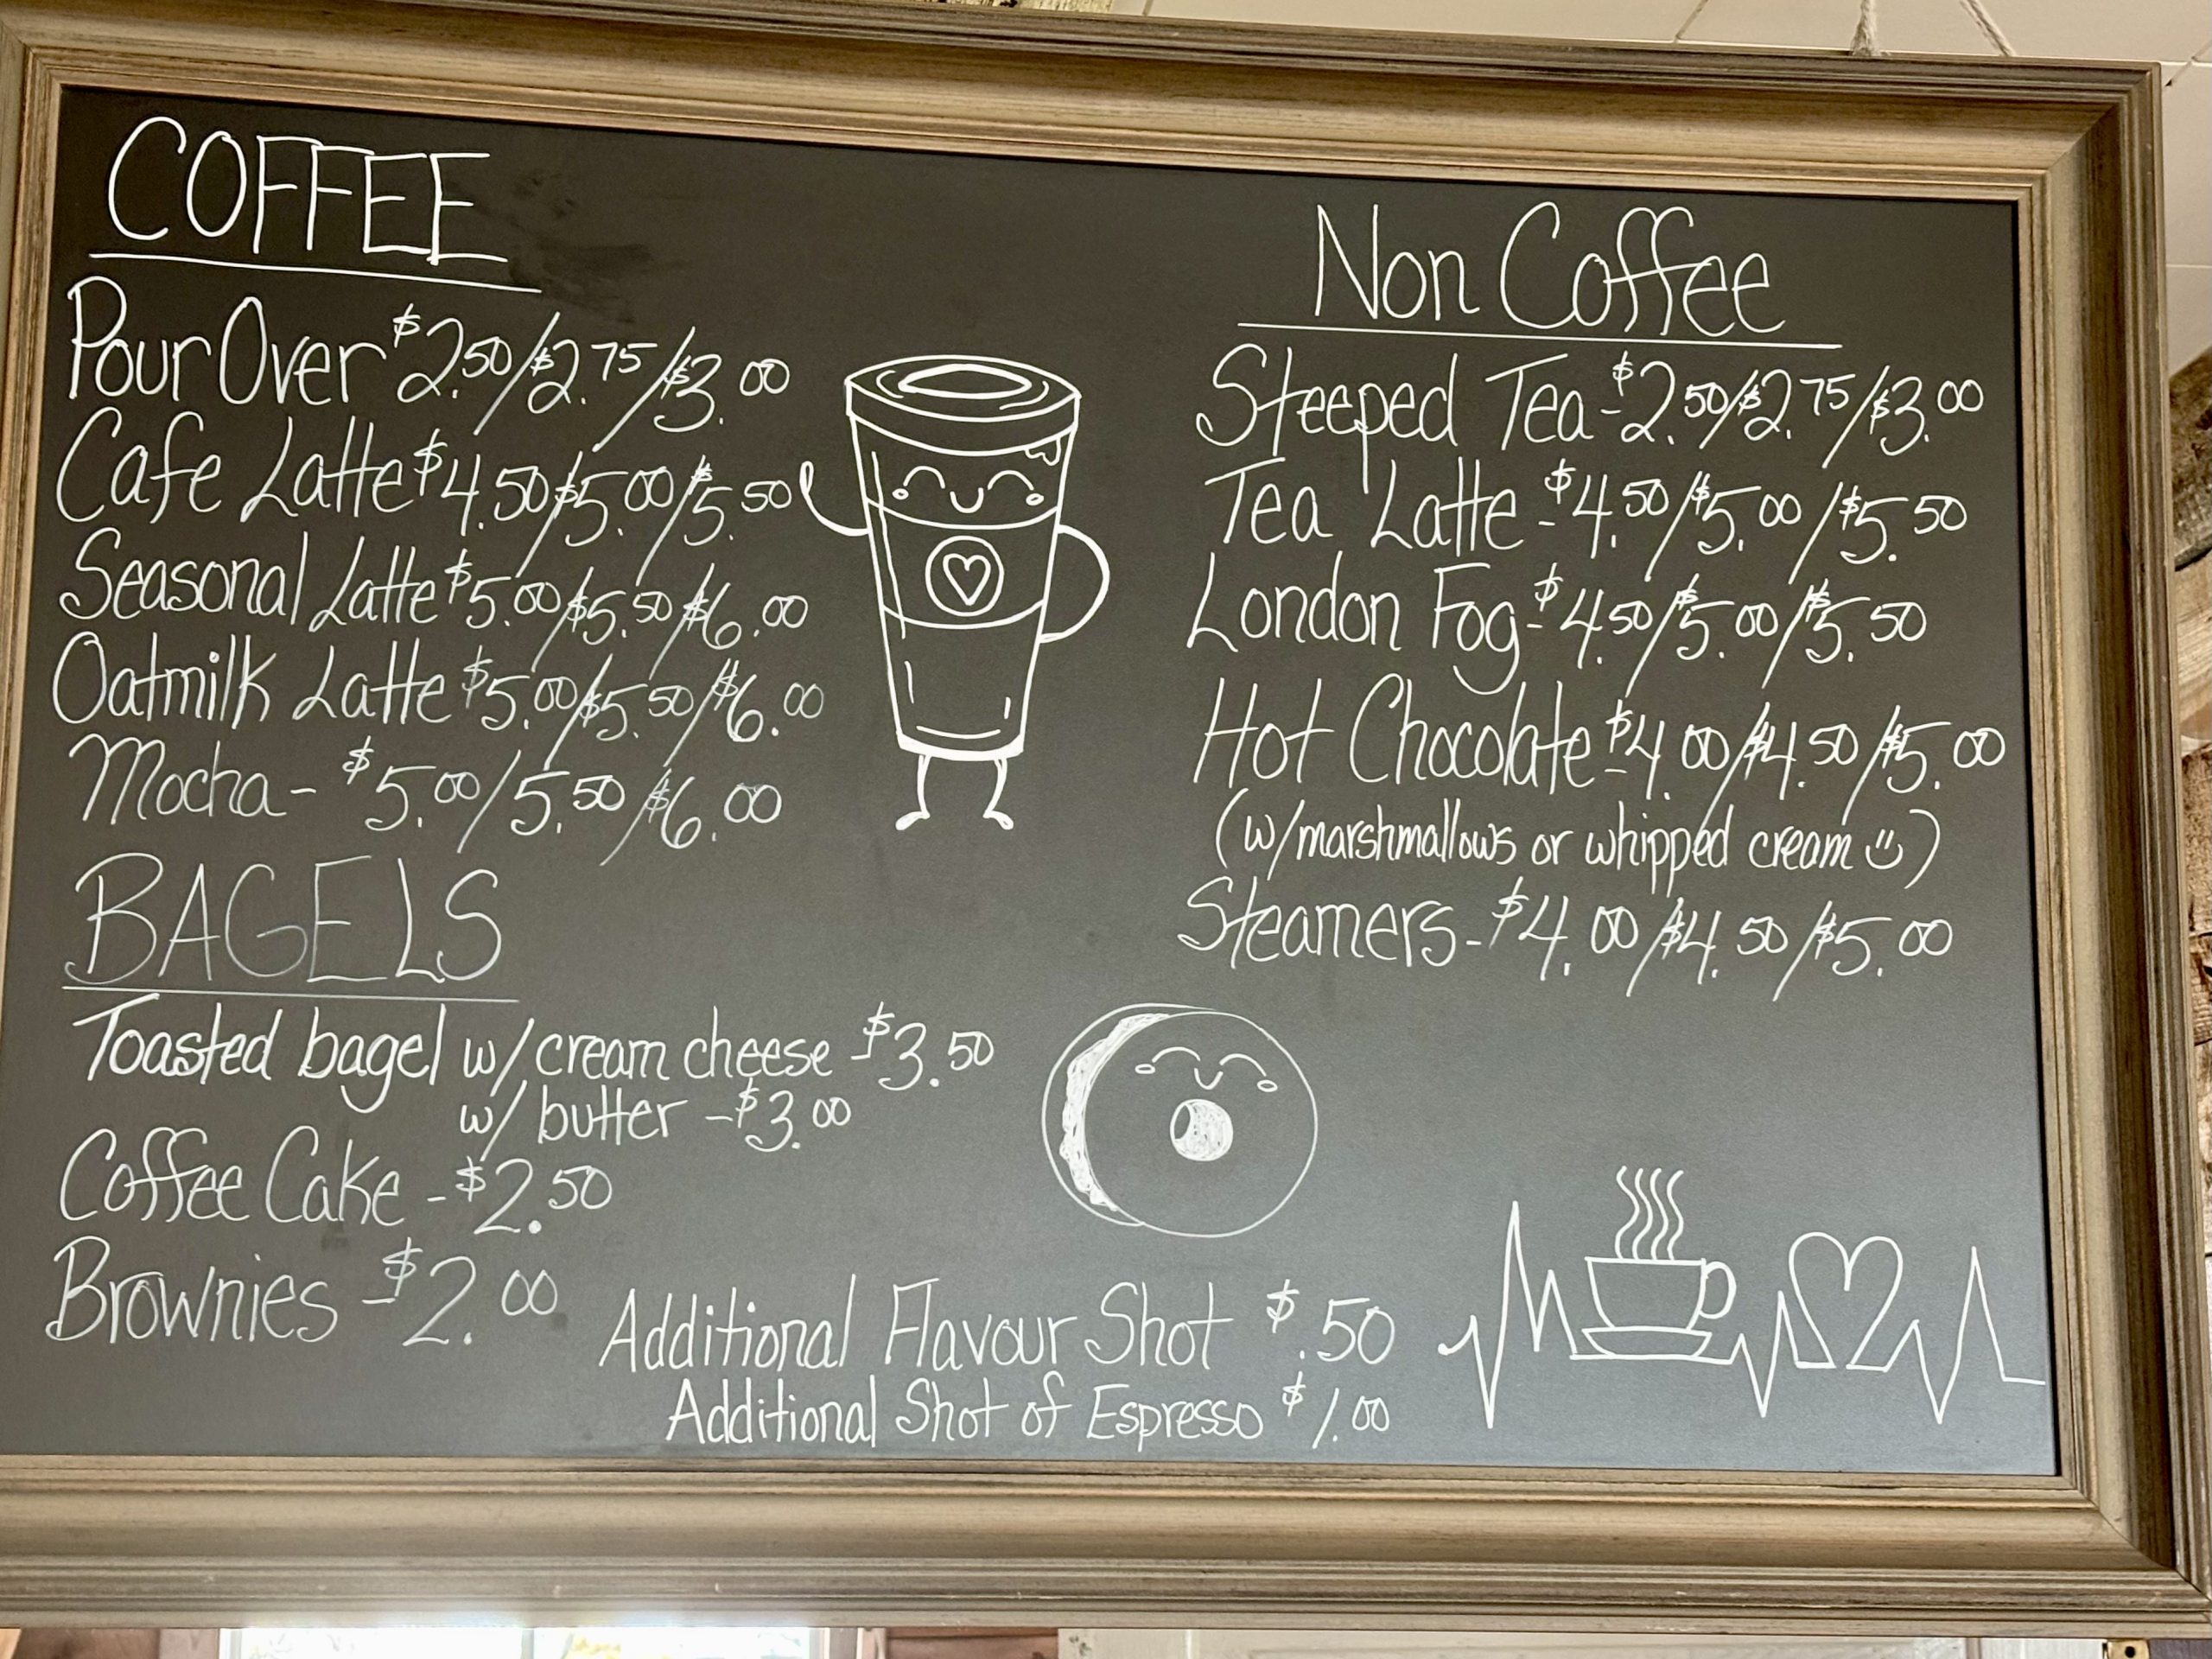 COFFEE
Pour Over $2.50/$2.75/$3.00
Cafe Latte $4.50/$5.00/$5.50
Seasonal Latte $5.00/$5.50/$6.00
Oatmilk Latte $5.00/$5.50/$6.00
Mocha - $5.00/5.50/$6.00
BAGELS
Toasted bagel w/ cream cheese - $3.50
w/ butter - $3.00
Coffee Cake - $2.50
Brownies - $2.00
Non Coffee
Steeped Tea - $2.50/$2.75/$3.00
Tea Latte - $4.50/$5.00/$5.50
London Fog - $4.50/$5.00/$5.50
Hot Chocolate - $4.00/$4.50/$5.00
(w/marshmallows or whipped cream :))
Steamers - $4.00/$4.50/$5.00
Additional Flavour Shot $.50
Additional Shot of Espresso $1.00